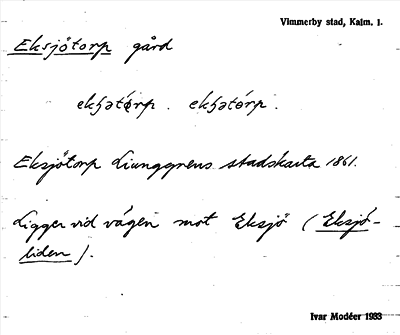 Vimmerby stad, Kalm. l.
Eksjötorp gård
ekʃatórp. ekʃatórp.
Eksjötorp Ljunggrens stadskarta 1861.
Ligger vid vägen mot Eksjö (Eksjö-
liden).
Ivar Modéer 1933